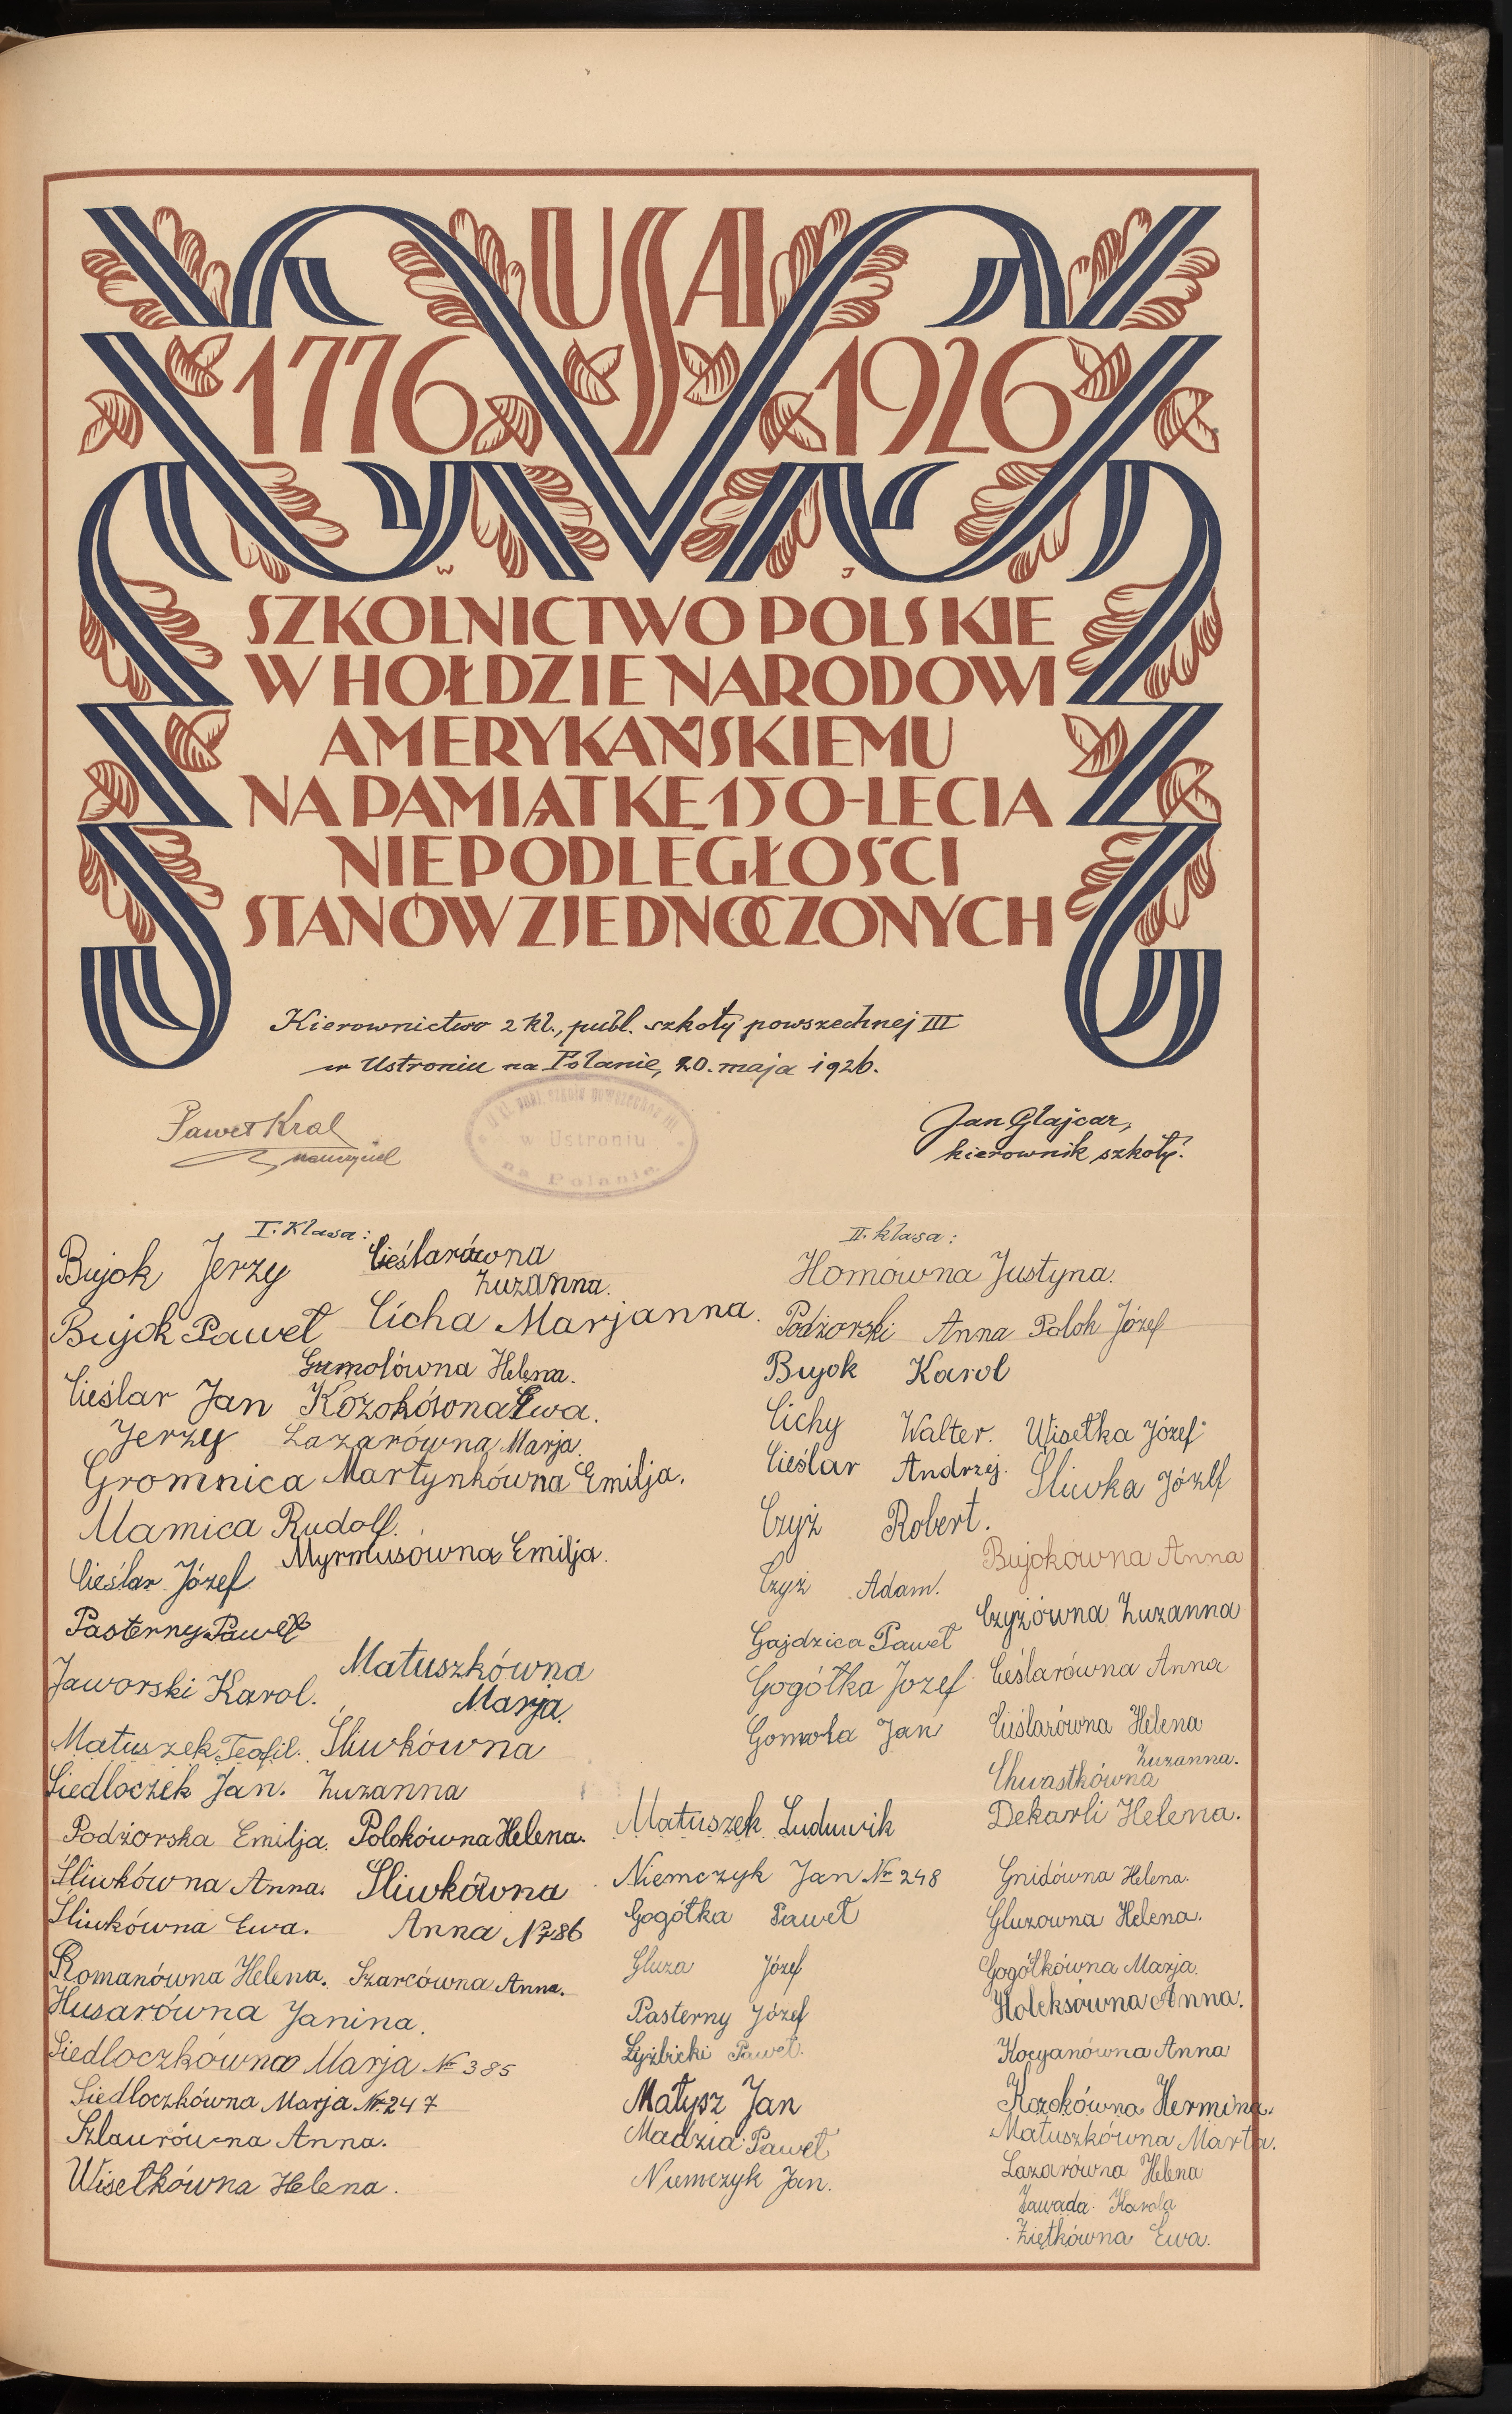 USA
1776 1926
W J
SZKOLNICTWO POLSKIE
W HOŁDZIE NARODOWI
AMERYKAŃSKIEMU
NA PAMIĄTKĘ 150-LECIA
NIEPODLEGŁOŚCI
STANÓW ZJEDNOCZONYCH
Kierownictwo 2 kl., publ. szkoły powszechnej III
w Ustroniu na Polanie, 20. maja 1926.
Paweł Kral
nauczyciel
w Ustroniu
na Polanie
Jan Glajcar,
kierownik szkoły.
I. Klasa:
Bujok Jerzy
Bujok Paweł
Cieślar Jan
Jerzy
Gromnica
Mamica Rudolf.
Cieślar Józef
Pasterny Paweł
Jaworski Karol.
Matuszek Teofil.
Siedloczek Jan.
Podżorska Emilja.
Śliwkówna Anna.
Śliwkówna Ewa.
Romanówna Helena.
Husarówna Janina.
Siedloczkówna Marja № 385
Siedloczkówna Marja №. 247
Szlaurówna Anna.
Wisełkówna Helena.
Cieślarówna
Zuzanna.
Cicha Marjanna.
Gumolówna Helena.
Kozokówna Ewa.
Lazarówna Marja
Martynkówna Emilja.
Myrmusówna Emilja.
Matuszkówna
Marja.
Śliwkówna
Zuzanna
Polokówna Helena.
Śliwkówna
Anna № 86
Szarcówna Anna.
II. klasa:
Homówna Justyna.
Podżorski Anna Polok Józef
Bujok Karol
Cichy Walter.
Cieślar Andrzej.
Czyż Robert.
Czyż Adam.
Gajdzica Paweł
Gogółka Jozef
Gomoła Jan
Matuszek Ludwik
Niemczyk Jan № 248
Gogółka Paweł
Gluza Józef
Pasterny Józef
Łyżbicki Paweł.
Małysz Jan
Madzia Paweł
Niemczyk Jan.
Wisełka Józef
Śliwka Józef
Bujokówna Anna
Czyżówna Zuzanna
Cieślarówna Anna
Cieślarówna Helena
Zuzanna.
Chwastkówna
Dekarli Helena.
Gnidówna Helena.
Gluzowna Helena.
Gogółkówna Marja.
Holeksówna Anna.
Kocyanówna Anna
Kozokówna Hermina.
Matuszkówna Marta.
Lazarówna Helena
Zawada Karola
Ziętkówna Ewa.